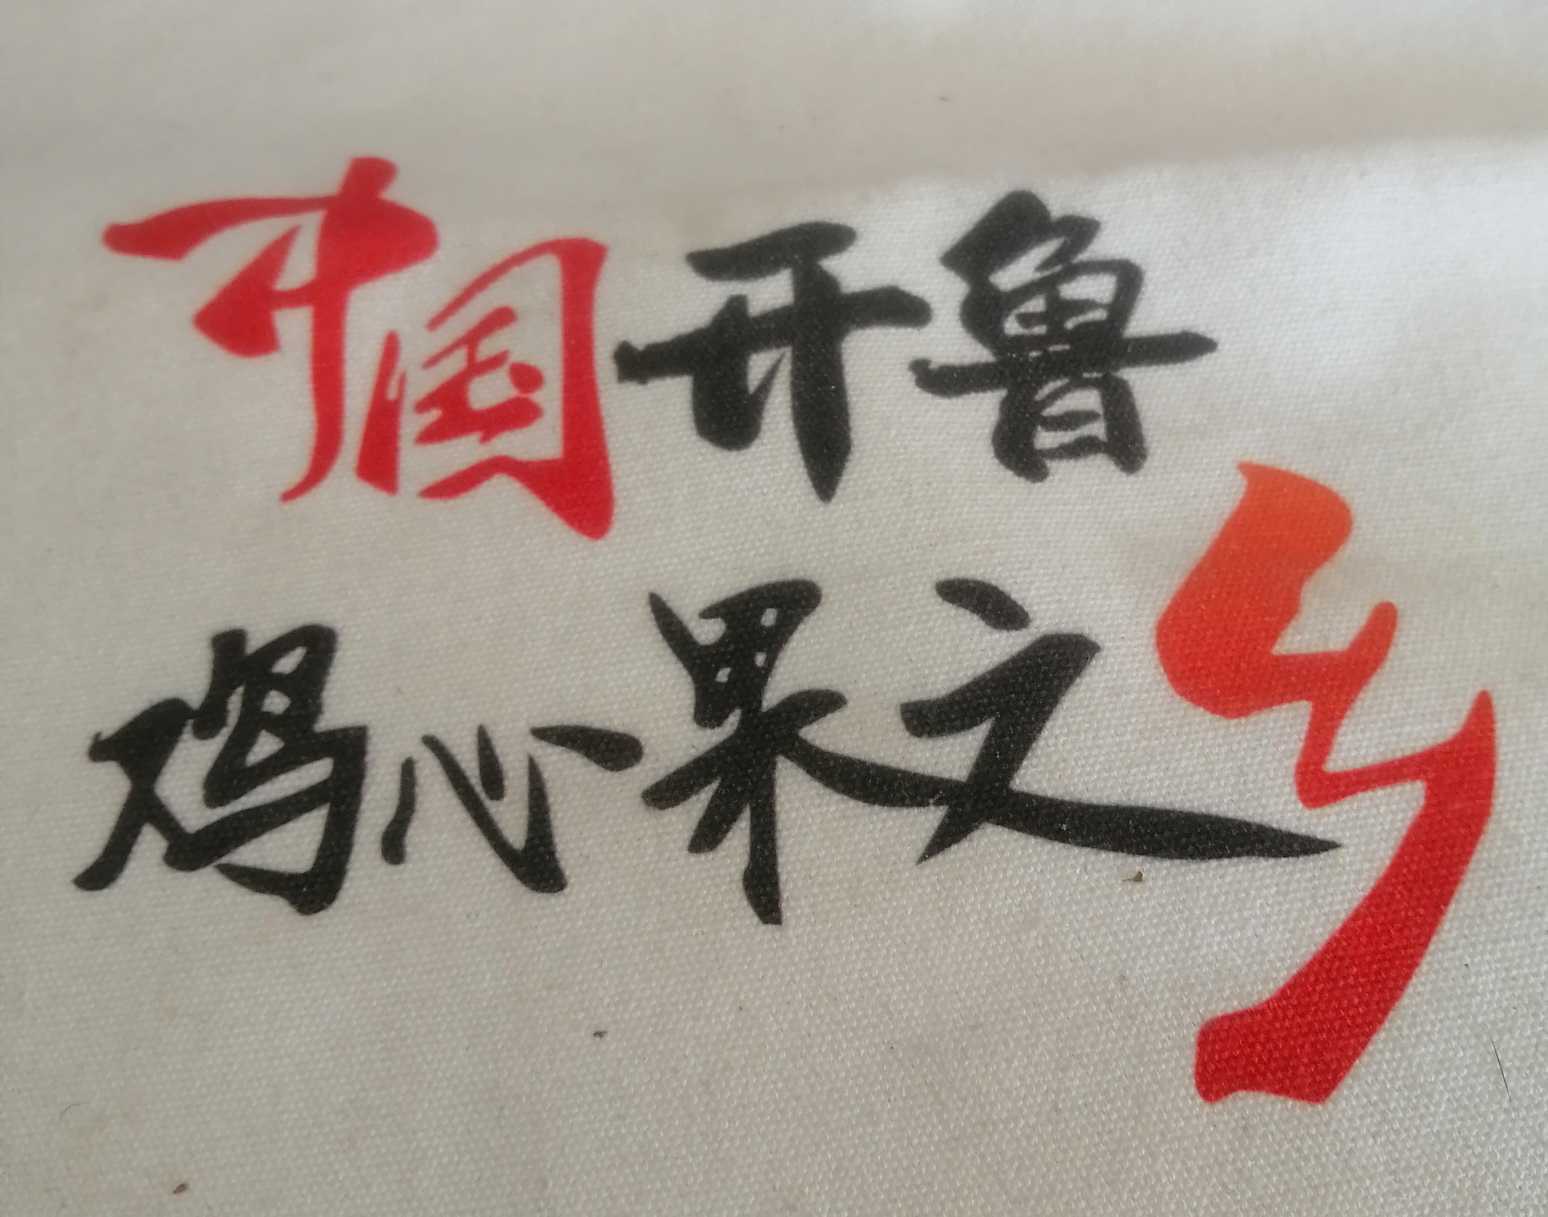 中国开鲁
鸡心果之乡